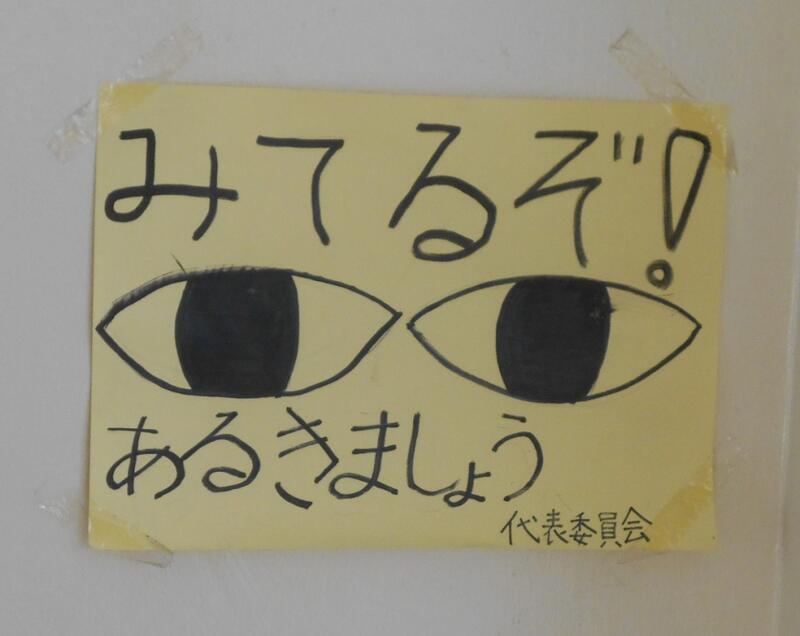 みてるぞ!
あるきましょう
代表委員会